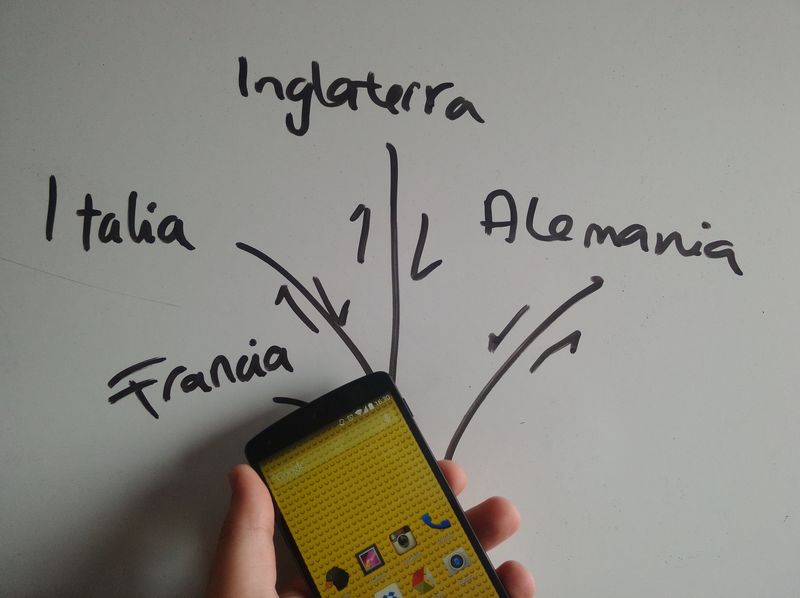 Inglaterra
Italia
Alemania
Francia
16:30
Google